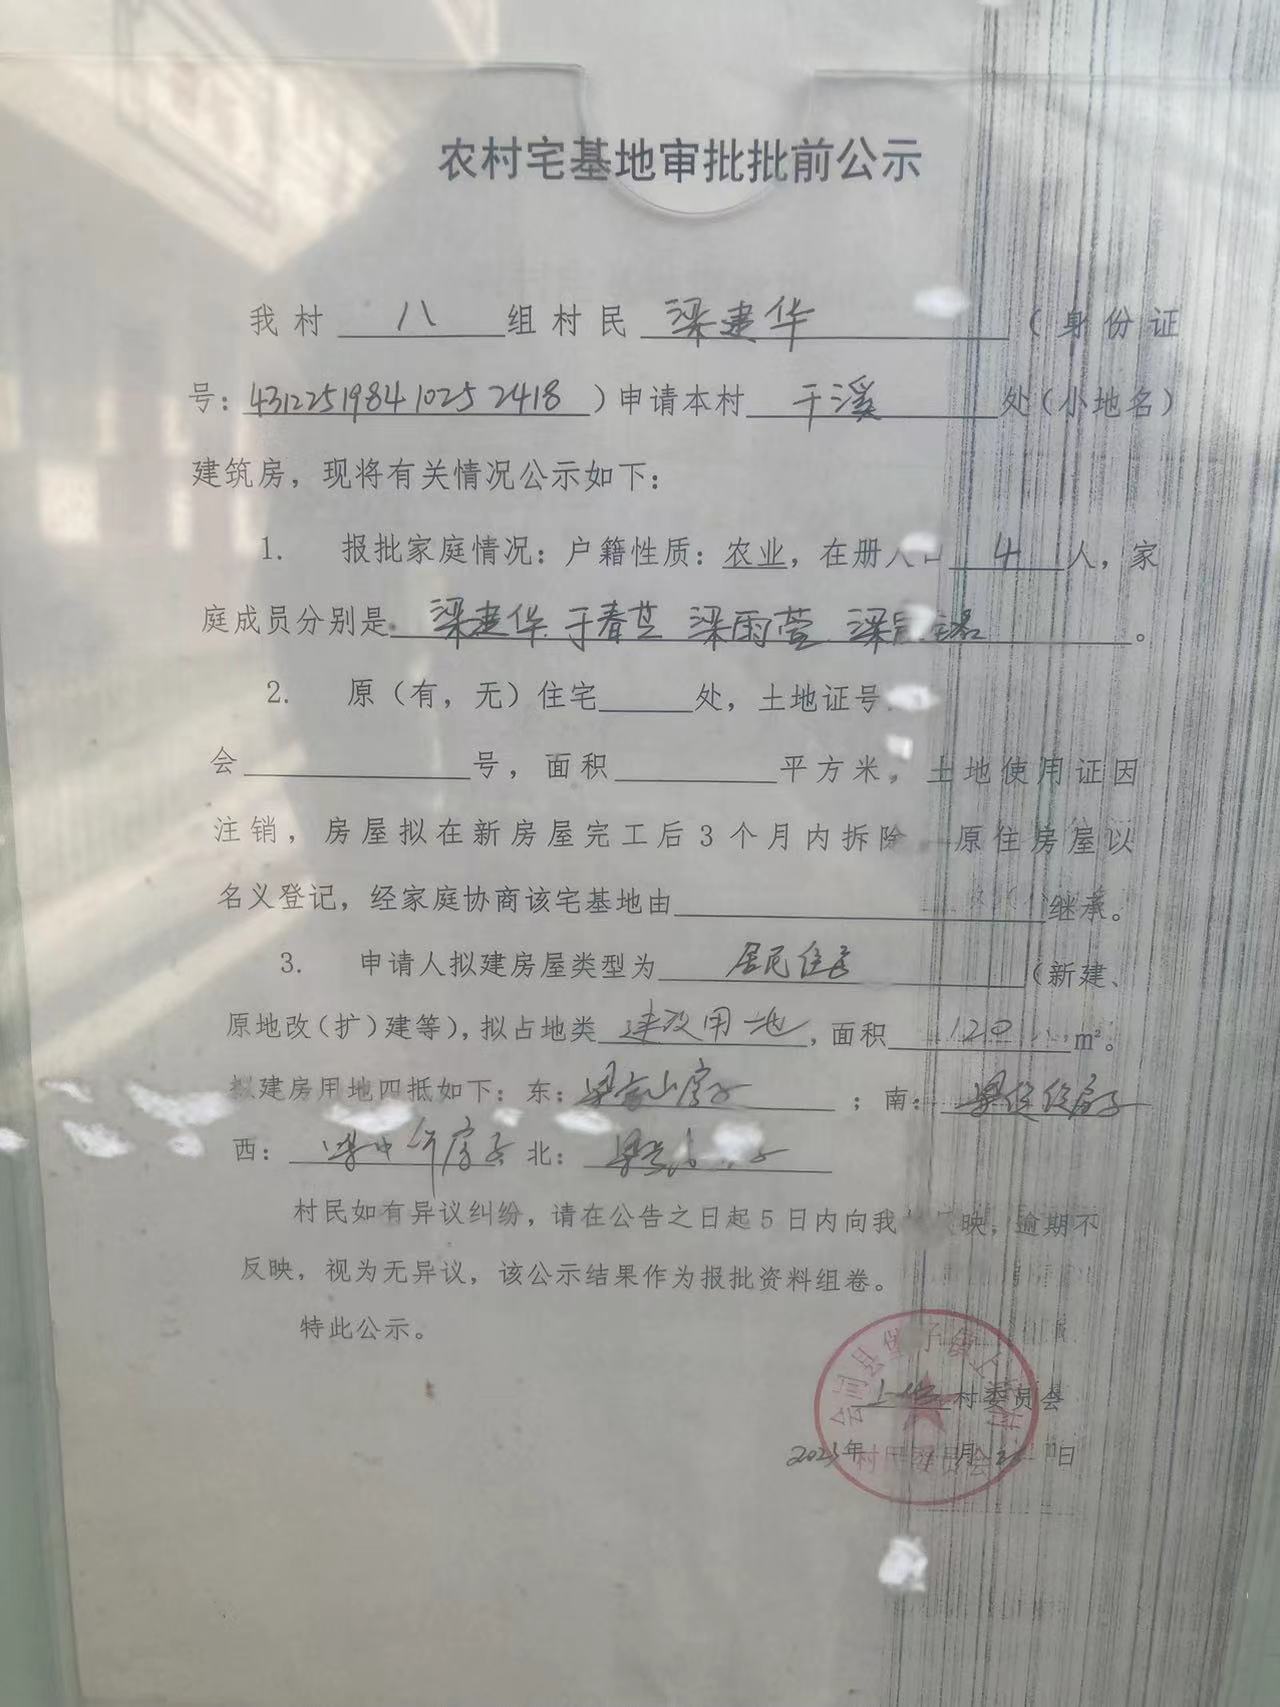 农村宅基地审批批前公示
我村 八 组村民 梁建华 (身份证
号: 431225198410252418 ) 申请本村 干溪 处(小地名)
建筑房,现将有关情况公示如下:
1. 报批家庭情况:户籍性质:农业,在册人口 4 人,家
庭成员分别是 梁建华 于春芝 梁雨萱 梁 。
2. 原(有,无)住宅 处,土地证号
会 号,面积 平方米,土地使用证因
注销,房屋拟在新房屋完工后3个月内拆除,原住房屋以
名义登记,经家庭协商该宅基地由 继承。
3. 申请人拟建房屋类型为 居民住房 (新建、
原地改(扩)建等),拟占地类 建设用地 ,面积 120 m²。
拟建房用地四抵如下:东: 房子 ;南: 房子
西: 房子 北: 子
村民如有异议纠纷,请在公告之日起5日内向我 反映,逾期不
反映,视为无异议,该公示结果作为报批资料组卷。
特此公示。
会同县堡子镇上
村委员会
2023年 月 日
村民委员会